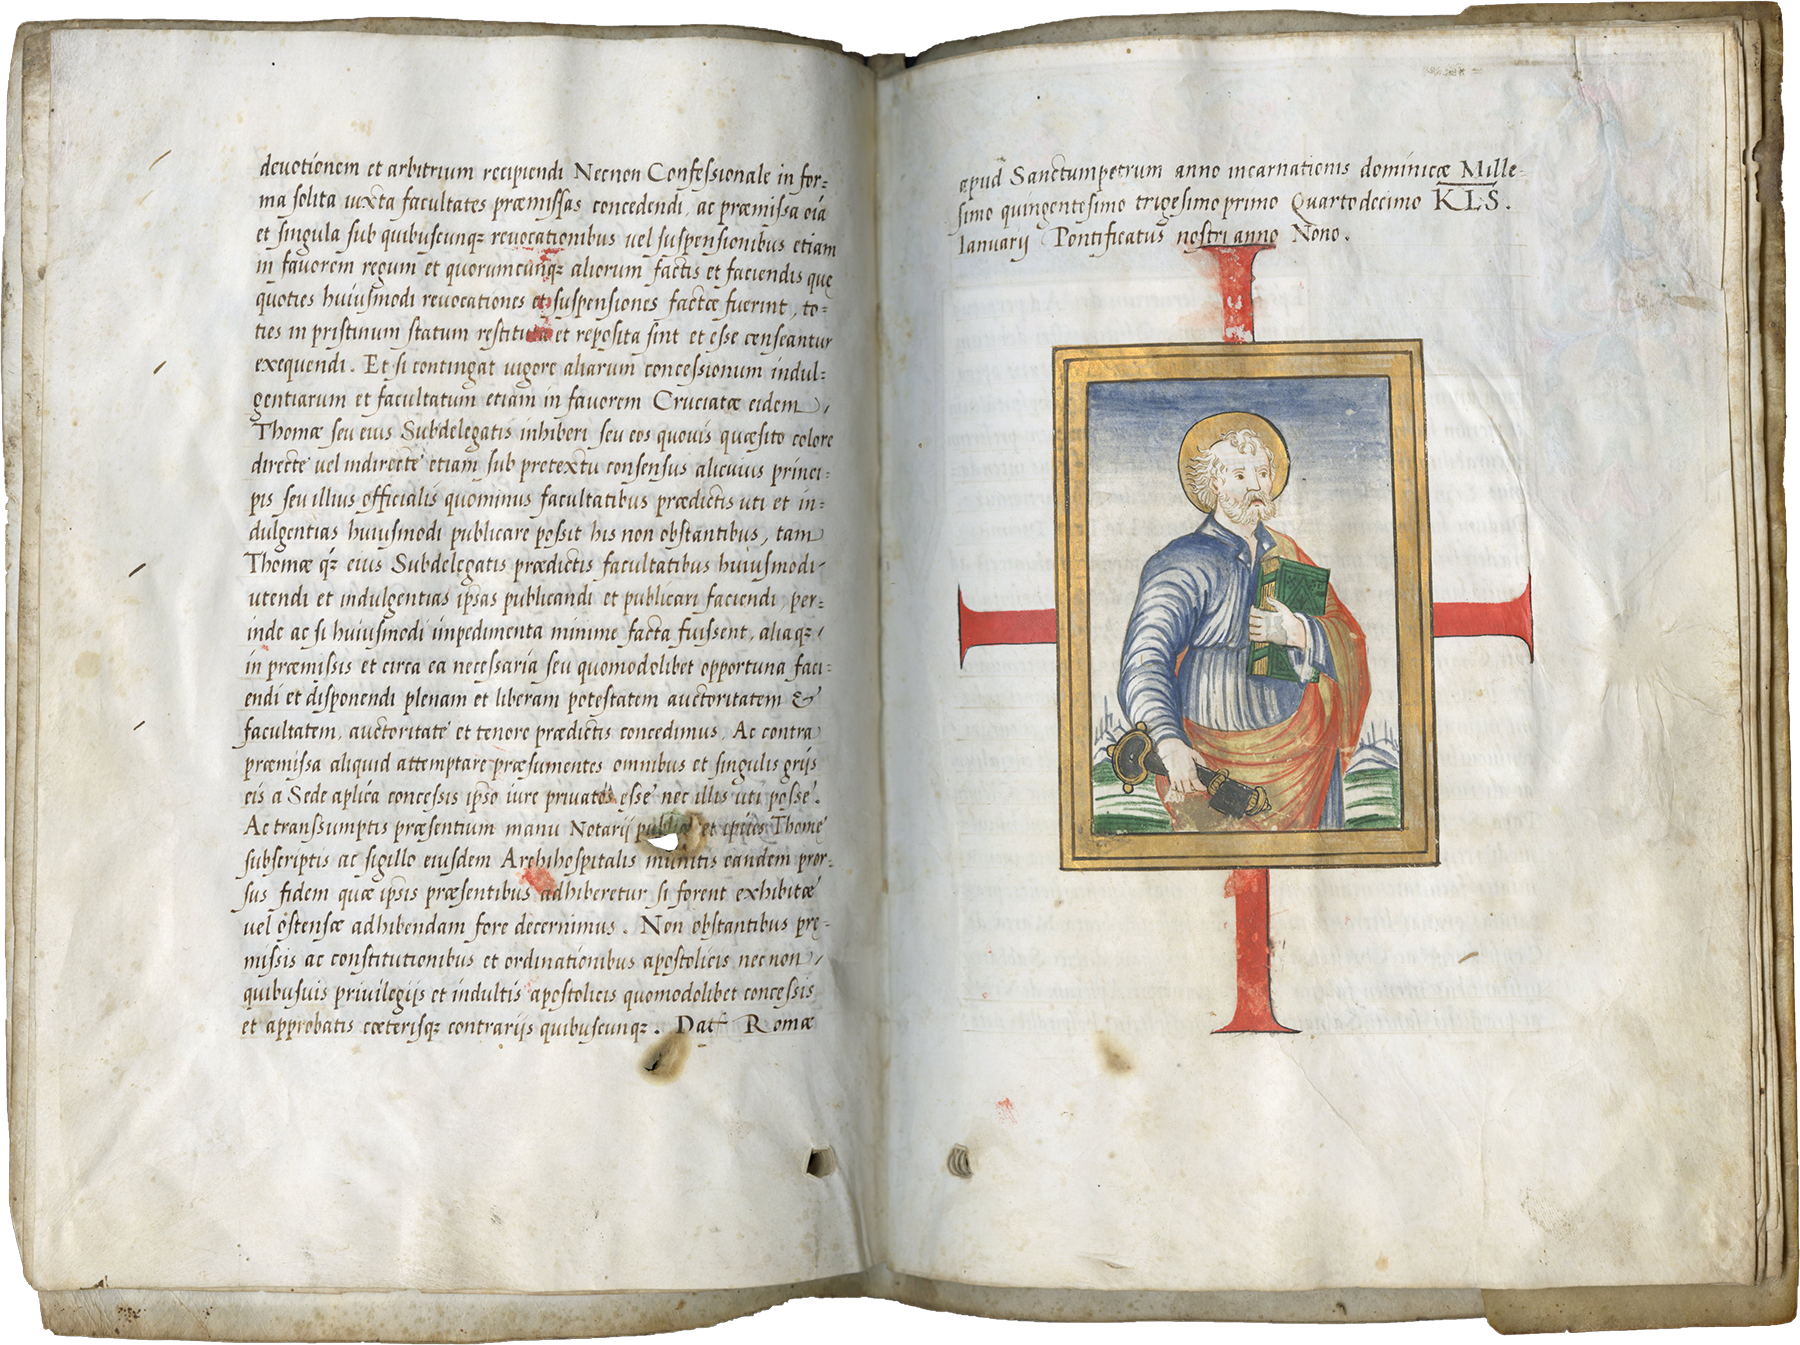 devotionem et arbitrium recipiendi Necnon Confessionale in for=
ma solita iuxta facultates præmissas concedendi, ac præmissa oia
et singula sub quibuscunqʒ revocationibus vel suspensionibus etiam
in favorem regum et quorumcunqʒ aliorum factis et faciendis que
quoties huiusmodi revocationes et suspensiones factæ fuerint, to=
ties in pristinum statum restituta et reposita sint et esse censeantur
exequendi. Et si contingat vigore aliarum concessionum indul=
gentiarum et facultatum etiam in favorem Cruciatæ eidem /
Thomæ seu eius Subdelegatis inhiberi seu eos quovis quæsito colore
directe vel indirecte etiam sub pretextu consensus alicuius princi=
pis seu illius officialis quominus facultatibus prædictis uti et in=
dulgentias huiusmodi publicare possit his non obstantibus, tam
Thomæ qʒ eius Subdelegatis prædictis facultatibus huiusmodi
utendi et indulgentias ipsas publicandi et publicari faciendi, per=
inde ac si huiusmodi impedimenta minime facta fuissent, aliaqʒ /
in præmissis et circa ea necessaria seu quomodolibet opportuna faci=
endi et disponendi plenam et liberam potestatem auctoritatem &
facultatem, auctoritate et tenore prædictis concedimus, Ac contra
præmissa aliquid attemptare præsumentes omnibus et singulis grijs
eis a Sede aplica concessis ipso iure privatos esse nec illis uti posse.
Ac transsumptis præsentium manu Notarij et Thome
subscriptis ac sigillo eiusdem Archihospitalis munitis eandem pror=
sus fidem quæ ipsis præsentibus adhiberetur si forent exhibitæ
vel ostensæ adhibendam fore decernimus. Non obstantibus pre=
missis ac constitutionibus et ordinationibus apostolicis necnon /
quibusvis privilegijs et indultis apostolicis quomodolibet concessis
et approbatis cæterisqʒ contrarijs quibuscunqʒ. Dat Romæ
apud Sanctumpetrum anno incarnationis dominicæ Mille=
simo quingentesimo trigesimo primo Quartodecimo KLS.
Ianuarij Pontificatus nostri anno Nono.